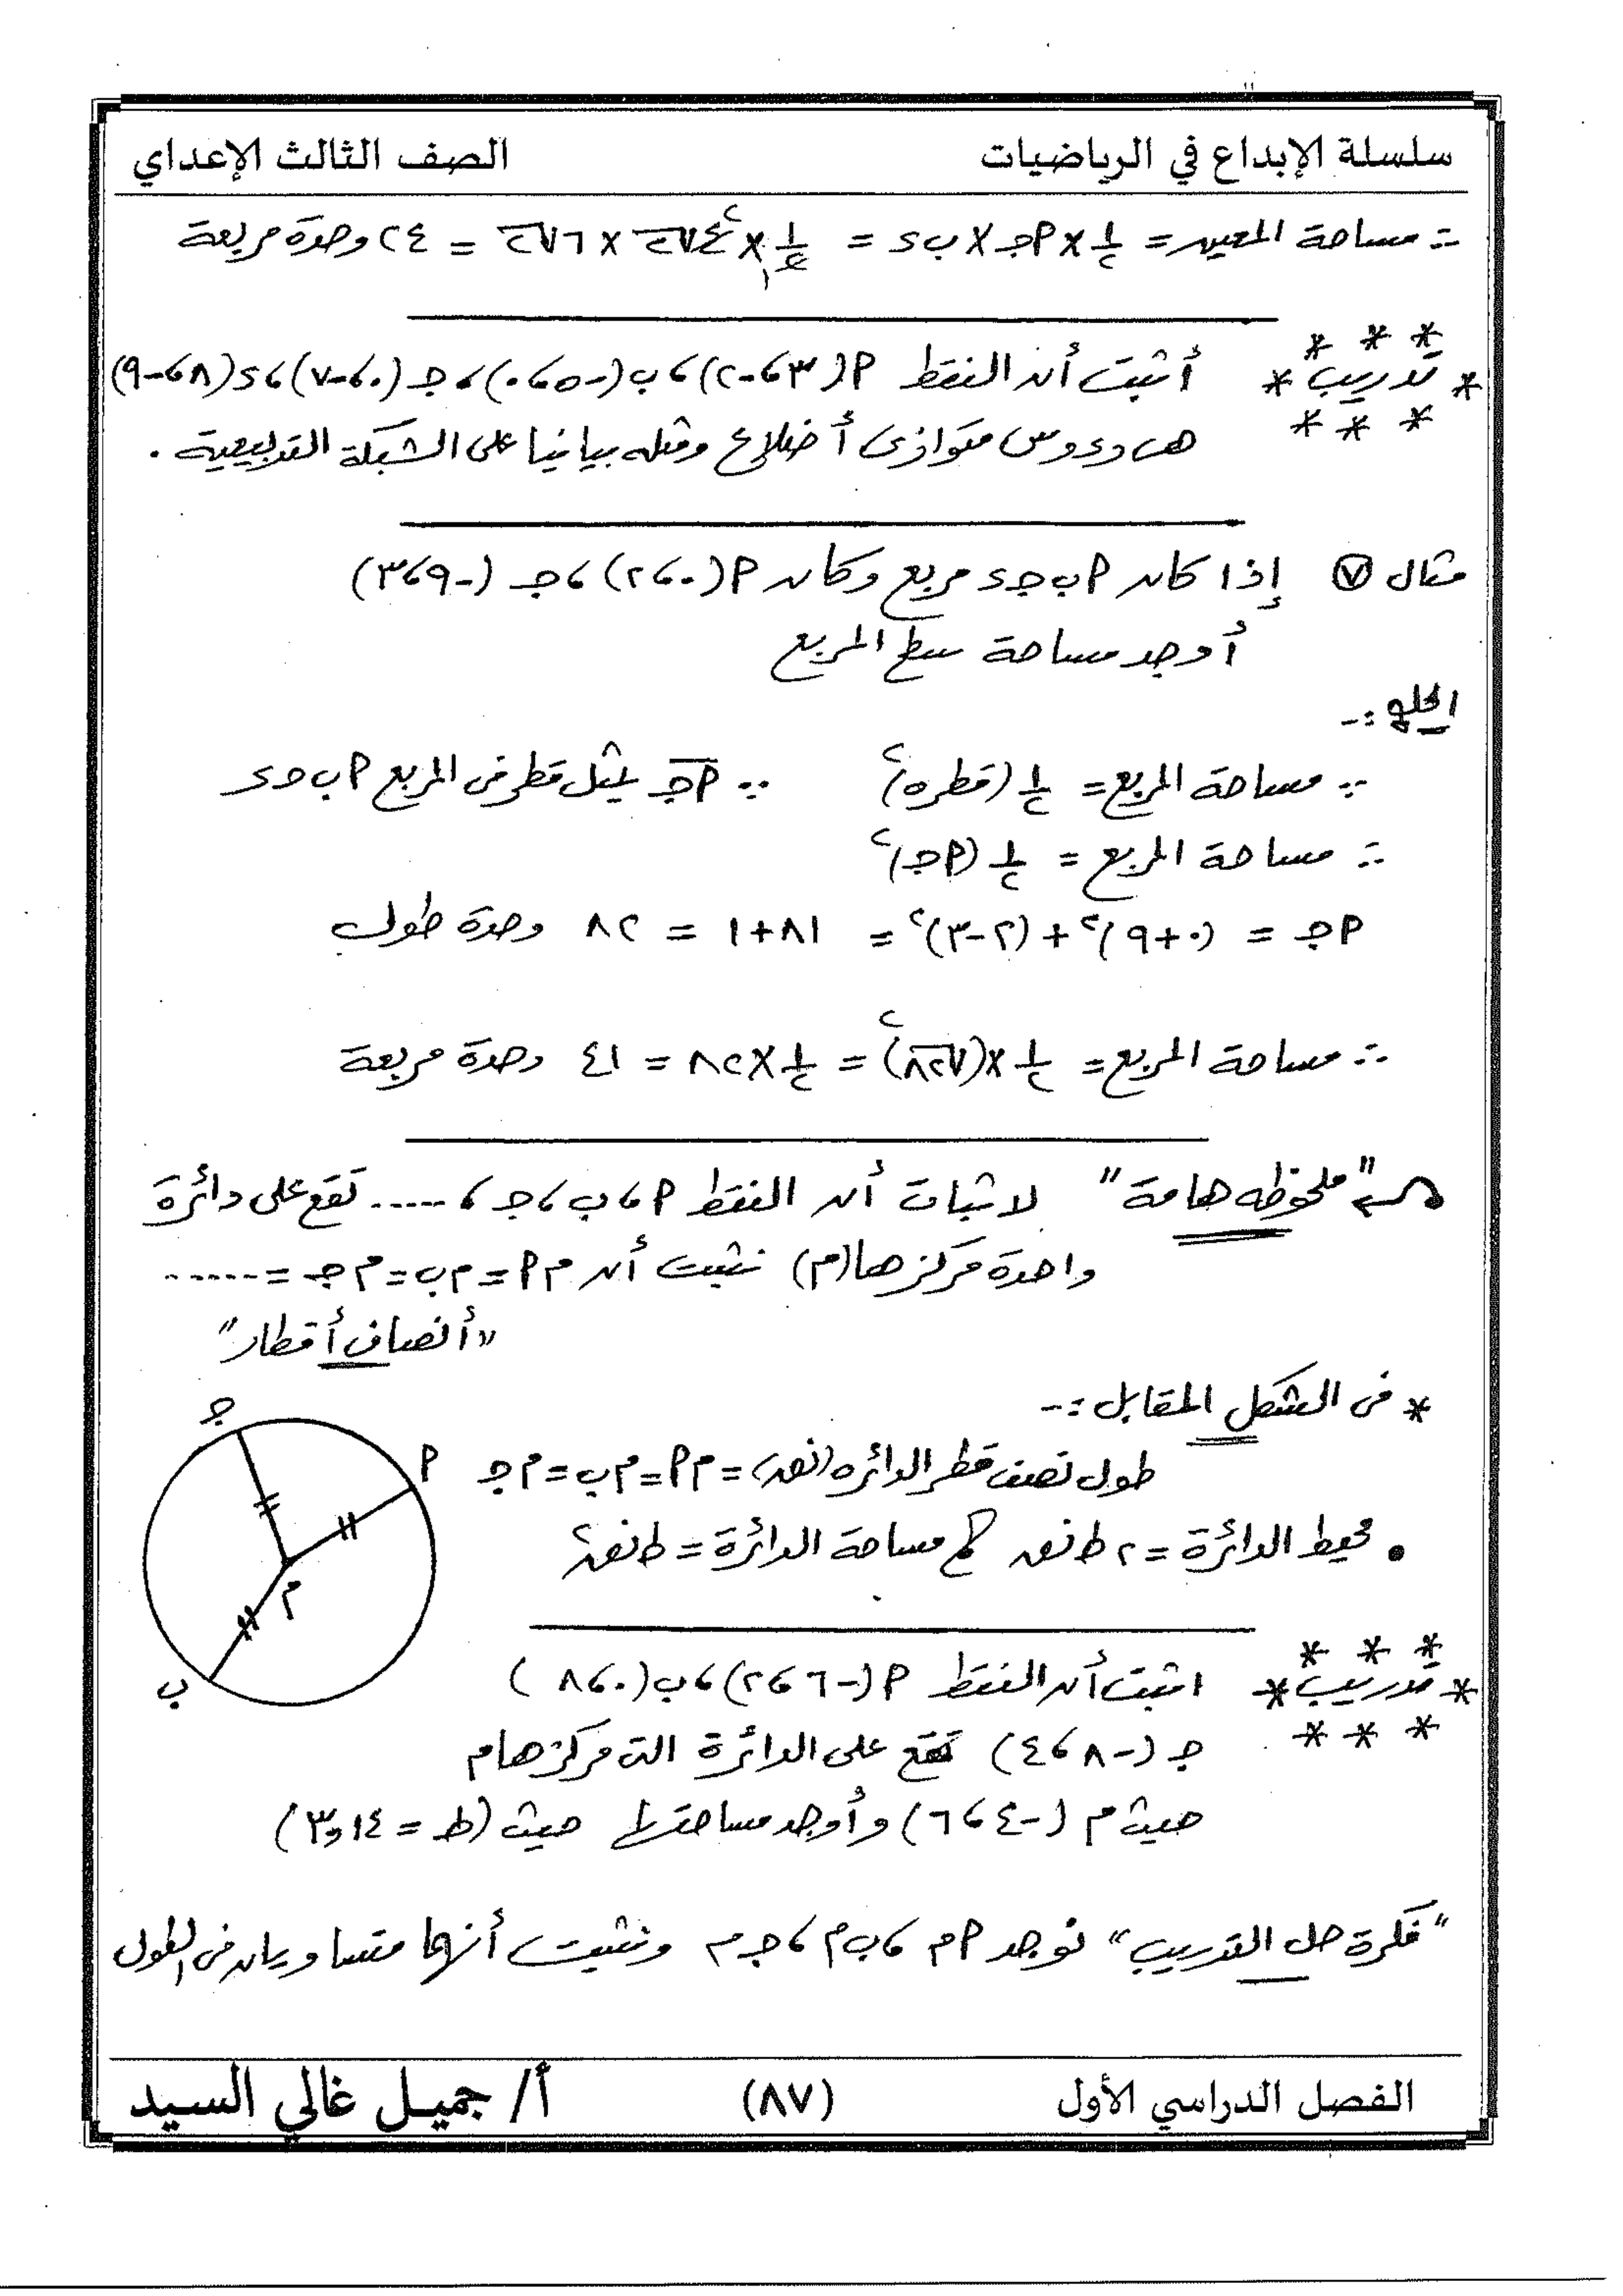 سلسلة الإبداع في الرياضيات
الصف الثالث الإعداي
∴ مساحة المعين = ١/٢ × أجـ × ب د = ١/٢ × ٤√٢ × ٦√٢ = ٢٤ وحدة مربعة
* تدريب * أثبت أن النقط أ(٣، -٢)، ب(-٥، ٠)، جـ(٠، -٧)، د(٨، -٩)
هى رءوس متوازى أضلاع ومثله بيانيا على الشبكة التربيعية.
مثال ٧ إذا كان أ ب جـ د مربع وكان أ(٠، ٢)، جـ(-٩، ٣)
أوجد مساحة سطح المربع
الحل :-
∵ مساحة المربع = ١/٢ (قطره)٢ ∵ أجـ يمثل قطر فى المربع أ ب جـ د
∴ مساحة المربع = ١/٢ (أجـ)٢
أجـ = (٠+٩)٢ + (٢-٣)٢ = ٨١+١ = ٨٢ وحدة طول
∴ مساحة المربع = ١/٢ × (√٨٢)٢ = ١/٢ × ٨٢ = ٤١ وحدة مربعة
"ملحوظه هامة" لاثبات أن النقط أ، ب، جـ، ..... تقع على دائرة
واحدة مركزها (م) نثبت أن م أ = م ب = م جـ = ......
"أنصاف أقطار"
* فى الشكل المقابل :-
طول نصف قطر الدائره (نق) = م أ = م ب = م جـ
• محيط الدائرة = ٢ ط نق ، مساحة الدائرة = ط نق٢
جـ
أ
م
ب
* تدريب * اثبت أن النقط أ(-٦، ٢)، ب(٠، ٨)
جـ(-٨، ٤) تقع على الدائرة التى مركزها م
حيث م(-٤، ٦) وأوجد مساحتها حيث (ط = ٣,١٤)
"فكرة حل التدريب" نوجد أ م، ب م، جـ م ونثبت أنها متساويان فى الطول
الفصل الدراسي الأول
(٨٧)
أ/ جميل غالي السيد